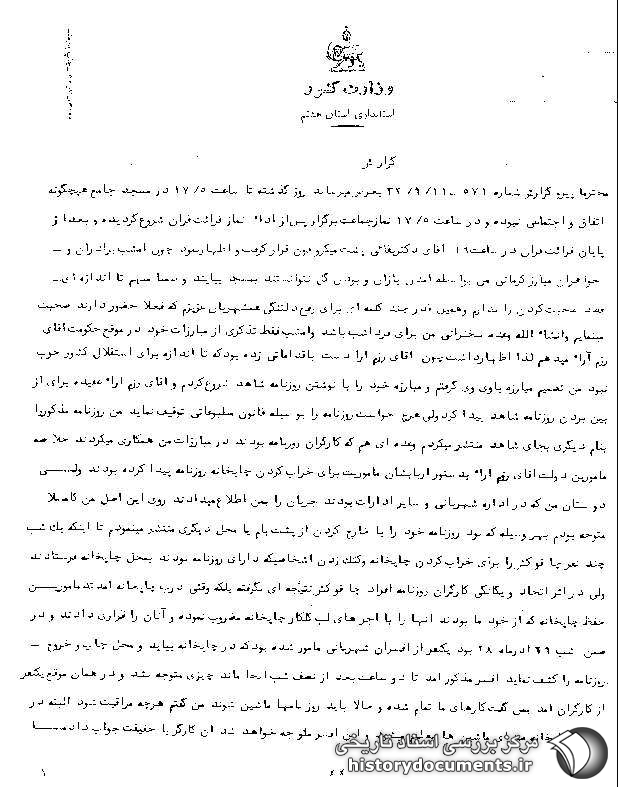 وزارت کشور
استانداری استان هشتم
گزارش
محترما پیرو گزارش شماره ۵۷۱ ـ ۳۲/۹/۱۱ بعرض میرساند روز گذشته تا ساعت ۱۷/۵ در مسجد جامع هیچگونه
اتفاق و اجتماعی نبوده و در ساعت ۱۷/۵ نماز جماعت برگزار پس از اداء نماز قرائت قرآن شروع گردیده و بعد از
پایان قرائت قرآن در ساعت آقای دکتر بقائی پشت میکروفون قرار گرفت و اظهار نمود چون امشب برادران و ـ
خواهران مبارز کرمانی من بواسطه آمدن باران و بودن گل نتوانستند بمسجد بیایند و منهم تا اندازه ای ـ
صحبت کردن را ندارم و همین قدر چند کلمه ای برای رفع دلتنگی همشهریان عزیزم که فعلا حضور دارند صحبت
مینمایم وانشاء الله وعده سخنرانی من برای فردا شب باشد وامشب فقط تذکری از مبارزات خود در موقع حکومت آقای
رزم آراء میدهم لذا اظهار داشت چون آقای رزم آرا دست باقداماتی زده بود که تا اندازه برای استقلال کشور خوب
نبود من تصمیم مبارزه باوی وی گرفتم و مبارزه خود را با نوشتن روزنامه شاهد شروع کردم و آقای رزم آراء عقیده برای از
بین بردن روزنامه شاهد پیدا کرد ولی هرچه خواست روزنامه را بوسیله قانون مطبوعاتی توقیف نماید من روزنامه مذکور را
بنام دیگری بجای شاهد منتشر میکردم وعده ای هم که کارگران روزنامه بودند در مبارزات من همکاری میکردند خلاصه
مامورین دولت آقای رزم آراء بدستور اربابشان ماموریت برای خراب کردن چاپخانه روزنامه پیدا کرده بودند ولی
دوستان من که در اداره شهربانی و سایر ادارات بودند جریان را بمن اطلاع میدادند روی این اصل من کاملا
متوجه بودم بهر وسیله که بود روزنامه خود را با خارج کردن از پشت بام یا محل دیگری منتشر مینمودم تا اینکه یک شب
چند نفر چاقوکش را برای خراب کردن چاپخانه وکتک زدن اشخاصیکه دارای روزنامه بودند بمحل چاپخانه فرستادند
ولی در اثر اتحاد و یگانگی کارگران روزنامه افراد چاقوکش نتیجه ای نگرفته بلکه وقتی درب چاپخانه آمدند مامورین
حفظ چاپخانه که از خود ما بودند آنها را با آجرهای لب کلکار چاپخانه مضروب نموده و آنان را فراری دادند و در
ضمن شب ۲۹ آذرماه ۲۸ بود یکنفر از افسران شهربانی مامور شده بود که در چاپخانه بیاید و محل چاپ و خروج ـ
روزنامه را کشف نماید افسر مذکور آمد تا دو ساعت بعد از نصف شب آنجا ماند چیزی متوجه نشد و در همان موقع یکنفر
از کارگران آمد بمن گفت کارهای ما تمام شده و حالا باید روزنامها ماشین شوند من گفتم هرچه مراقبت شود البته در
افسر متوجه خواهد شد آن کارگر با حقیقت جواب داد
۱
مرکز بررسی اسناد تاریخی
historydocuments.ir